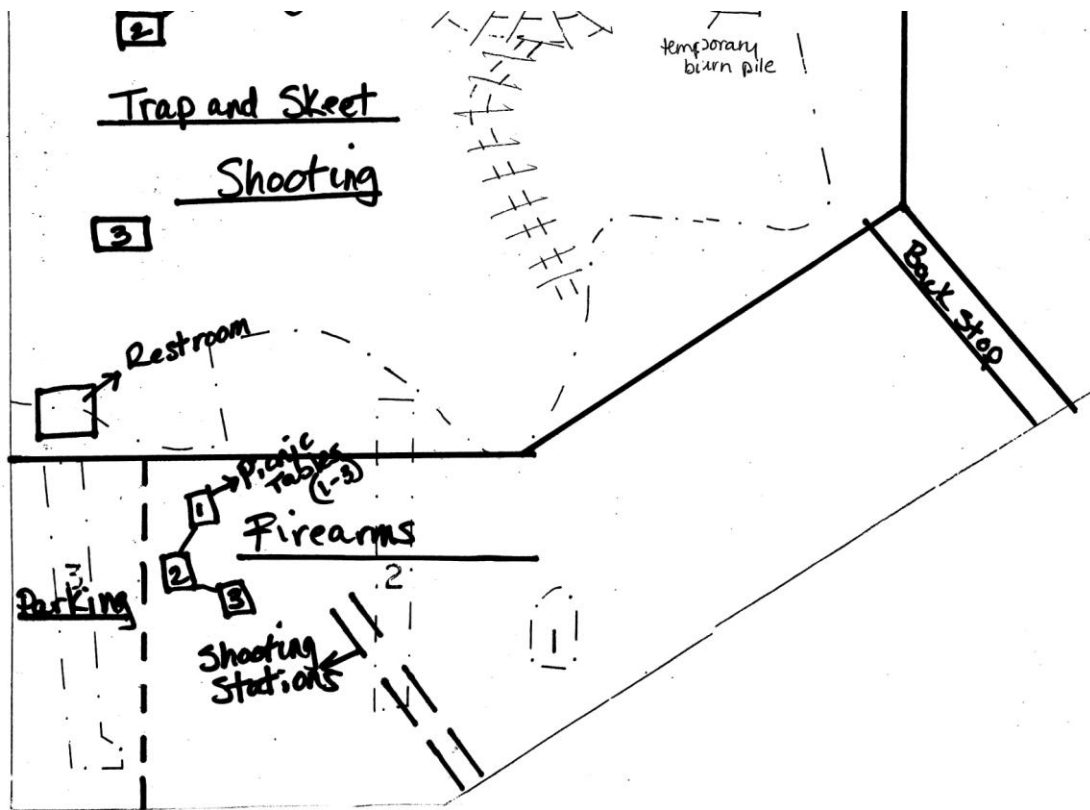 2
temporary
burn pile
Trap and Skeet
Shooting
3
Back Stop
Restroom
Picnic
Tables
(1-3)
1
Firearms
2
3
3
2
Parking
1
Shooting
Stations